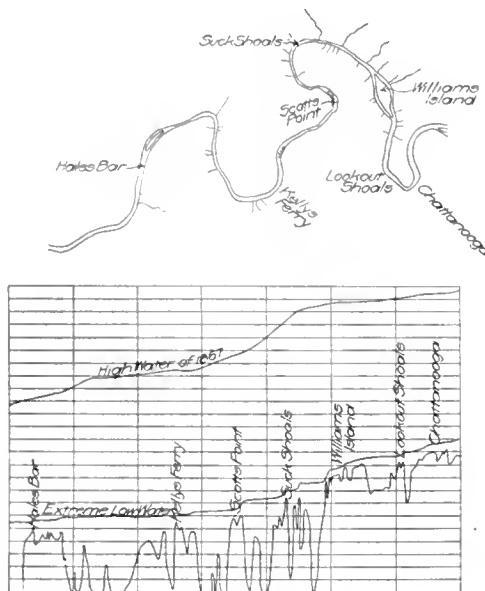 Suck Shoals
Williams
Island
Scotts
Point
Hales Bar
Lookout
Shoals
Kellys
Ferry
Chattanooga
High Water of 1867
Hales Bar
Extreme Low Water
Kellys Ferry
Scotts Point
Suck Shoals
Williams
Island
Lookout Shoals
Chattanooga